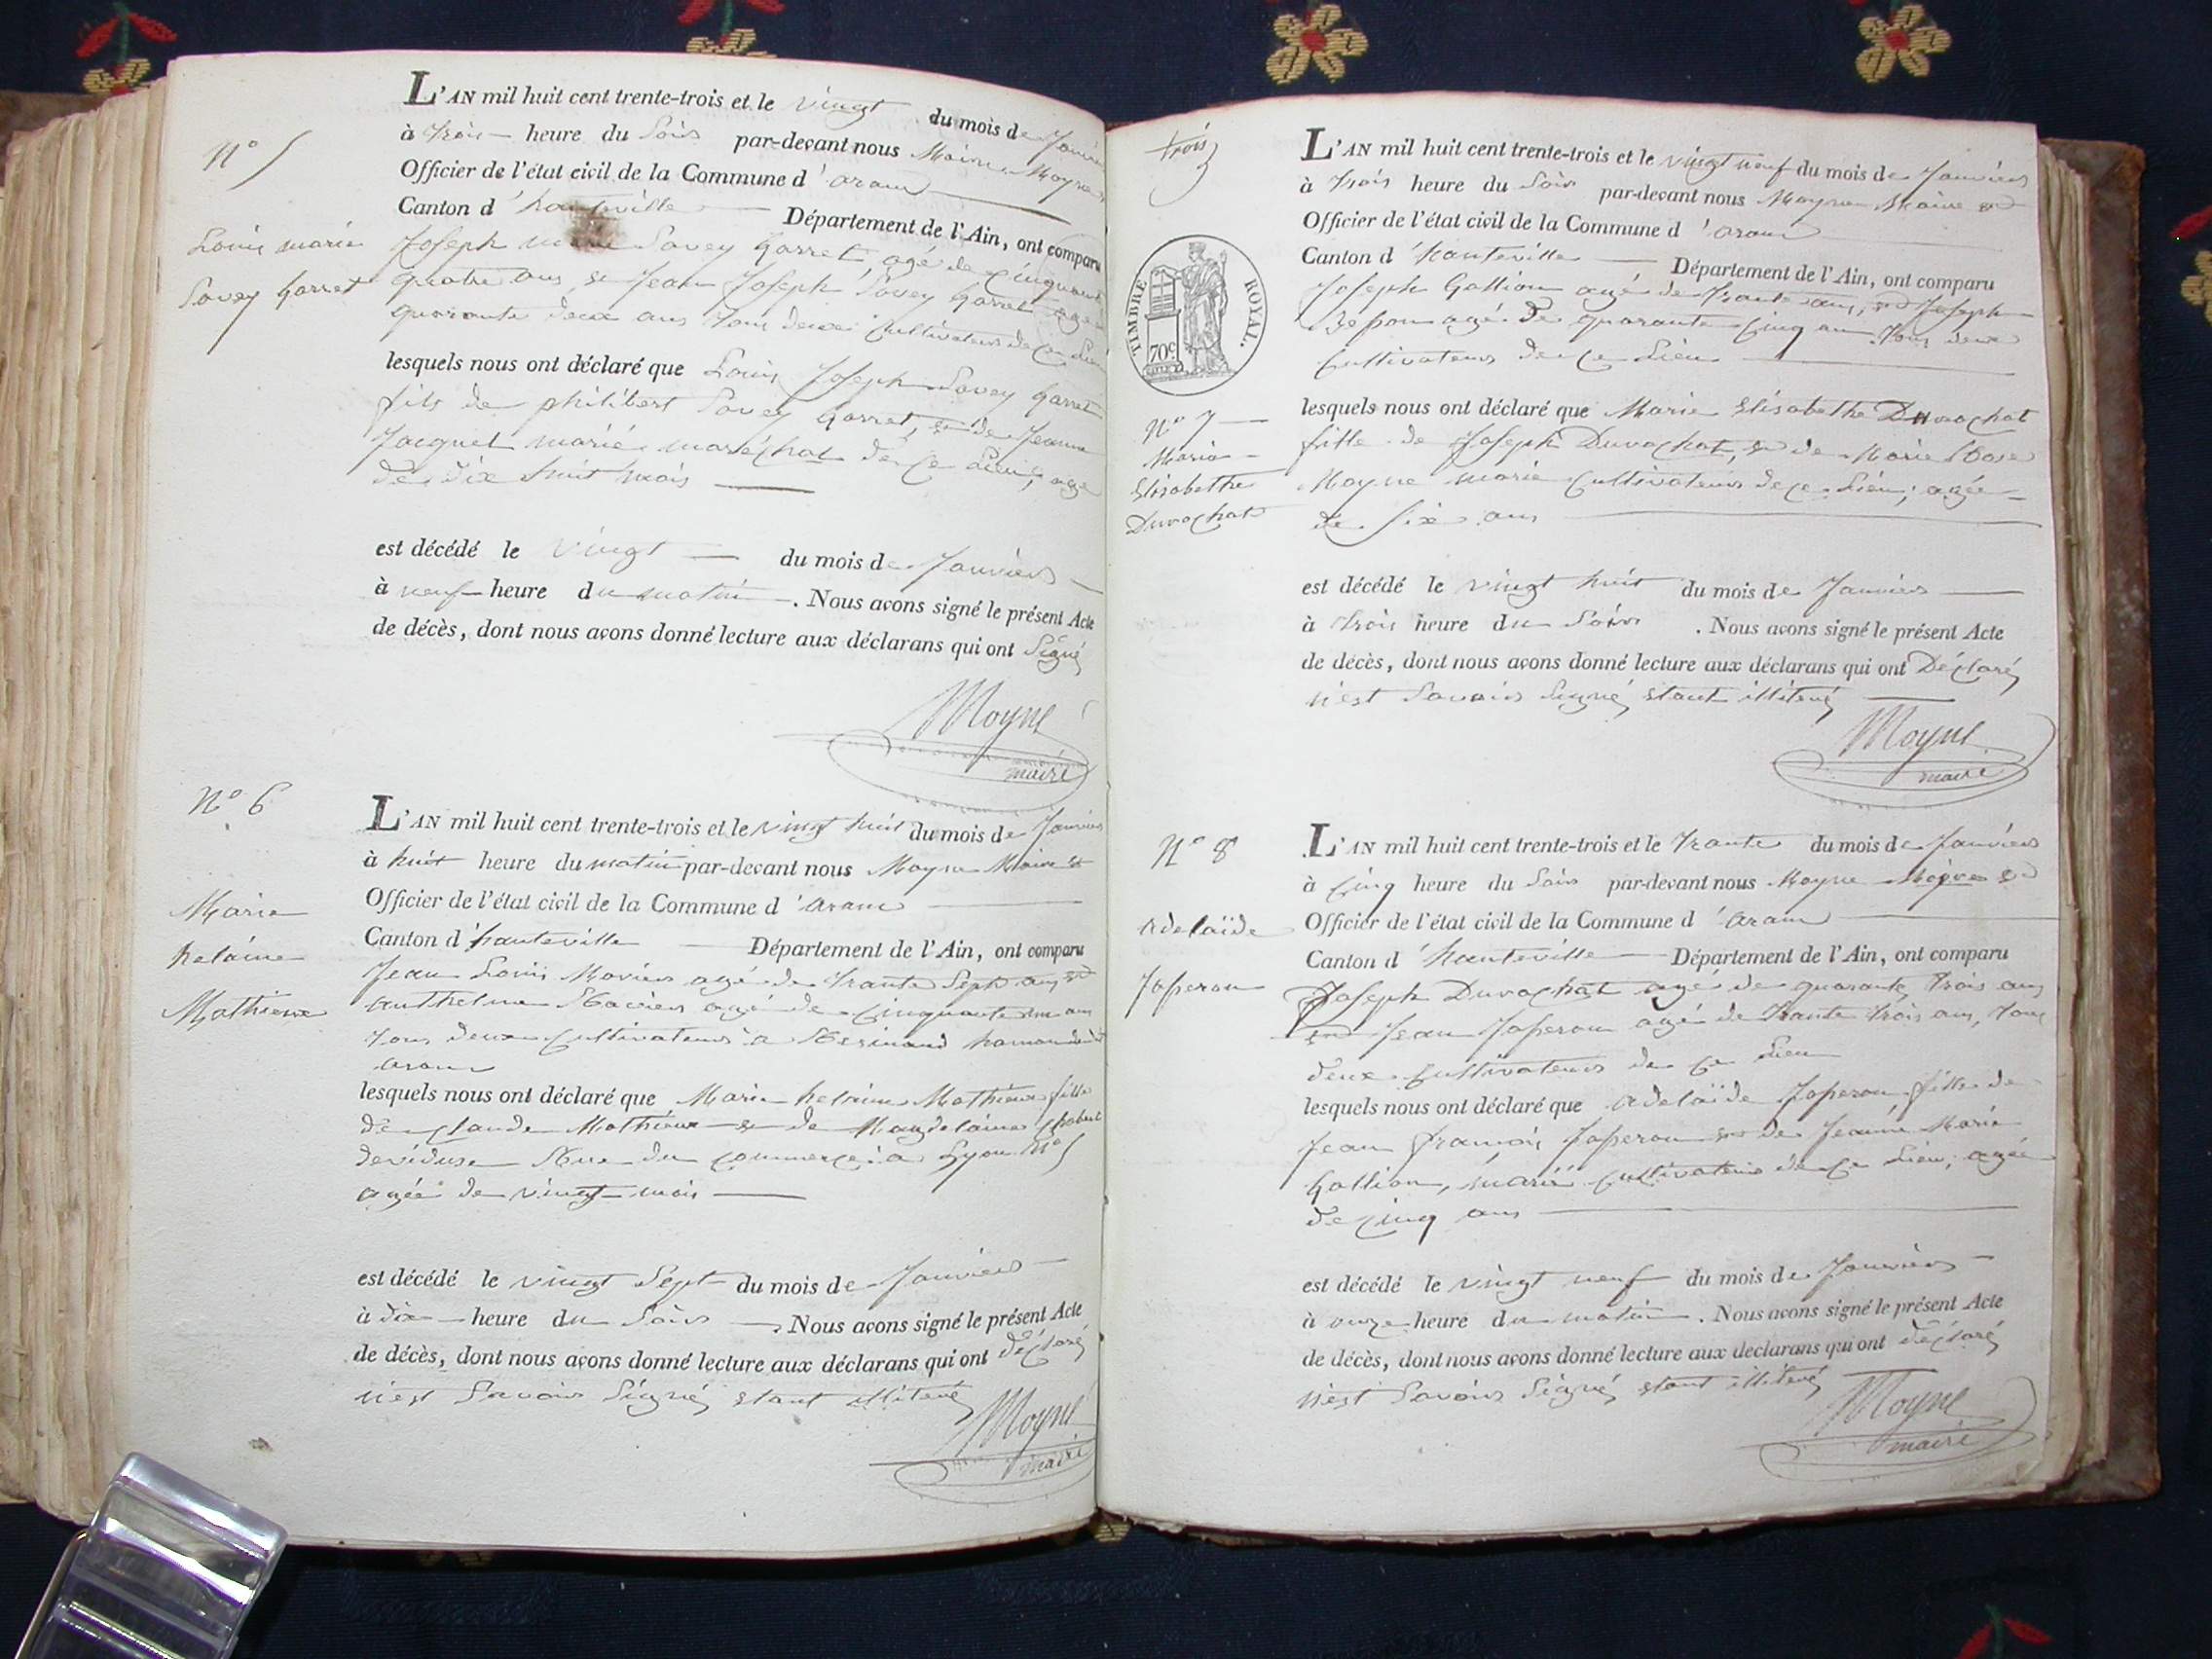 N° 5
Louis marie
Savey Garret
L'AN mil huit cent trente-trois et le vingt du mois de Janvier
à trois heure du Soir par-devant nous Maire Moyne
Officier de l'état civil de la Commune d'aranc
Canton d'hauteville Département de l'Ain, ont comparu
Joseph marie Savey Garret agé de cinquante
quatre ans, et Jean Joseph Savey Garret agé
quarante deux ans tous deux Cultivateurs de ce Lieu
lesquels nous ont déclaré que Louis Joseph Savey Garret
fils de philibert Savey Garret, et de Jeanne
Jacquet marié maréchal de ce Lieu, agé
de dix huit mois
est décédé le vingt du mois de Janvier
à neuf heure du matin. Nous avons signé le présent Acte
de décès, dont nous avons donné lecture aux déclarans qui ont Signé
Moyne
maire
N° 6
Marie
helaine
Mathieux
L'AN mil huit cent trente-trois et le vingt huit du mois de Janvier
à huit heure du matin par-devant nous Moyne Maire et
Officier de l'état civil de la Commune d'aranc
Canton d'hauteville Département de l'Ain, ont comparu
Jean Louis Mavier agé de trante Sept ans et
anthelme Mavier agé de cinquante un ans
tous deux Cultivateurs à
aranc
lesquels nous ont déclaré que Marie helaine Mathieux fille
de Claude Mathieux et de Magdelaine
dévideuse Rue du commerce à Lyon N° 5
agée de vingt mois
est décédé le vingt Sept du mois de Janvier
à dix heure du Soir. Nous avons signé le présent Acte
de décès, dont nous avons donné lecture aux déclarans qui ont déclaré
n'est Savoir Signé etant illiteré
Moyne
maire
trois
TIMBRE ROYAL.
70c
N° 7
Marie
Elisabethe
Duvachat
L'AN mil huit cent trente-trois et le vingt neuf du mois de Janvier
à trois heure du Soir par-devant nous Moyne Maire et
Officier de l'état civil de la Commune d'aranc
Canton d'hauteville Département de l'Ain, ont comparu
Joseph Gallion agé de trante ans, et Joseph
agé de quarante Cinq ans tous deux
Cultivateurs de ce Lieu
lesquels nous ont déclaré que Marie Elisabethe Duvachat
fille de Joseph Duvachat, et de Marie Rose
Moyne marié Cultivateurs de ce Lieu; agée
de Six ans
est décédé le vingt huit du mois de Janvier
à trois heure du Soir. Nous avons signé le présent Acte
de décès, dont nous avons donné lecture aux déclarans qui ont Déclaré
n'est Savoir Signé etant illiteré
Moyne
maire
N° 8
adelaïde
Japeron
L'AN mil huit cent trente-trois et le trante du mois de Janvier
à Cinq heure du Soir par-devant nous Moyne Maire et
Officier de l'état civil de la Commune d'aranc
Canton d'hauteville Département de l'Ain, ont comparu
Joseph Duvachat agé de quarante trois ans
et Jean Japeron agé de trante trois ans, tous
deux Cultivateurs de ce Lieu
lesquels nous ont déclaré que adelaïde Japeron fille de
Jean françois Japeron et de Jeanne Marie
Gallion, marié Cultivateurs de ce Lieu; agée
de Cinq ans
est décédé le vingt neuf du mois de Janvier
à onze heure du matin. Nous avons signé le présent Acte
de décès, dont nous avons donné lecture aux déclarans qui ont déclaré
n'est Savoir Signé etant illiteré
Moyne
maire